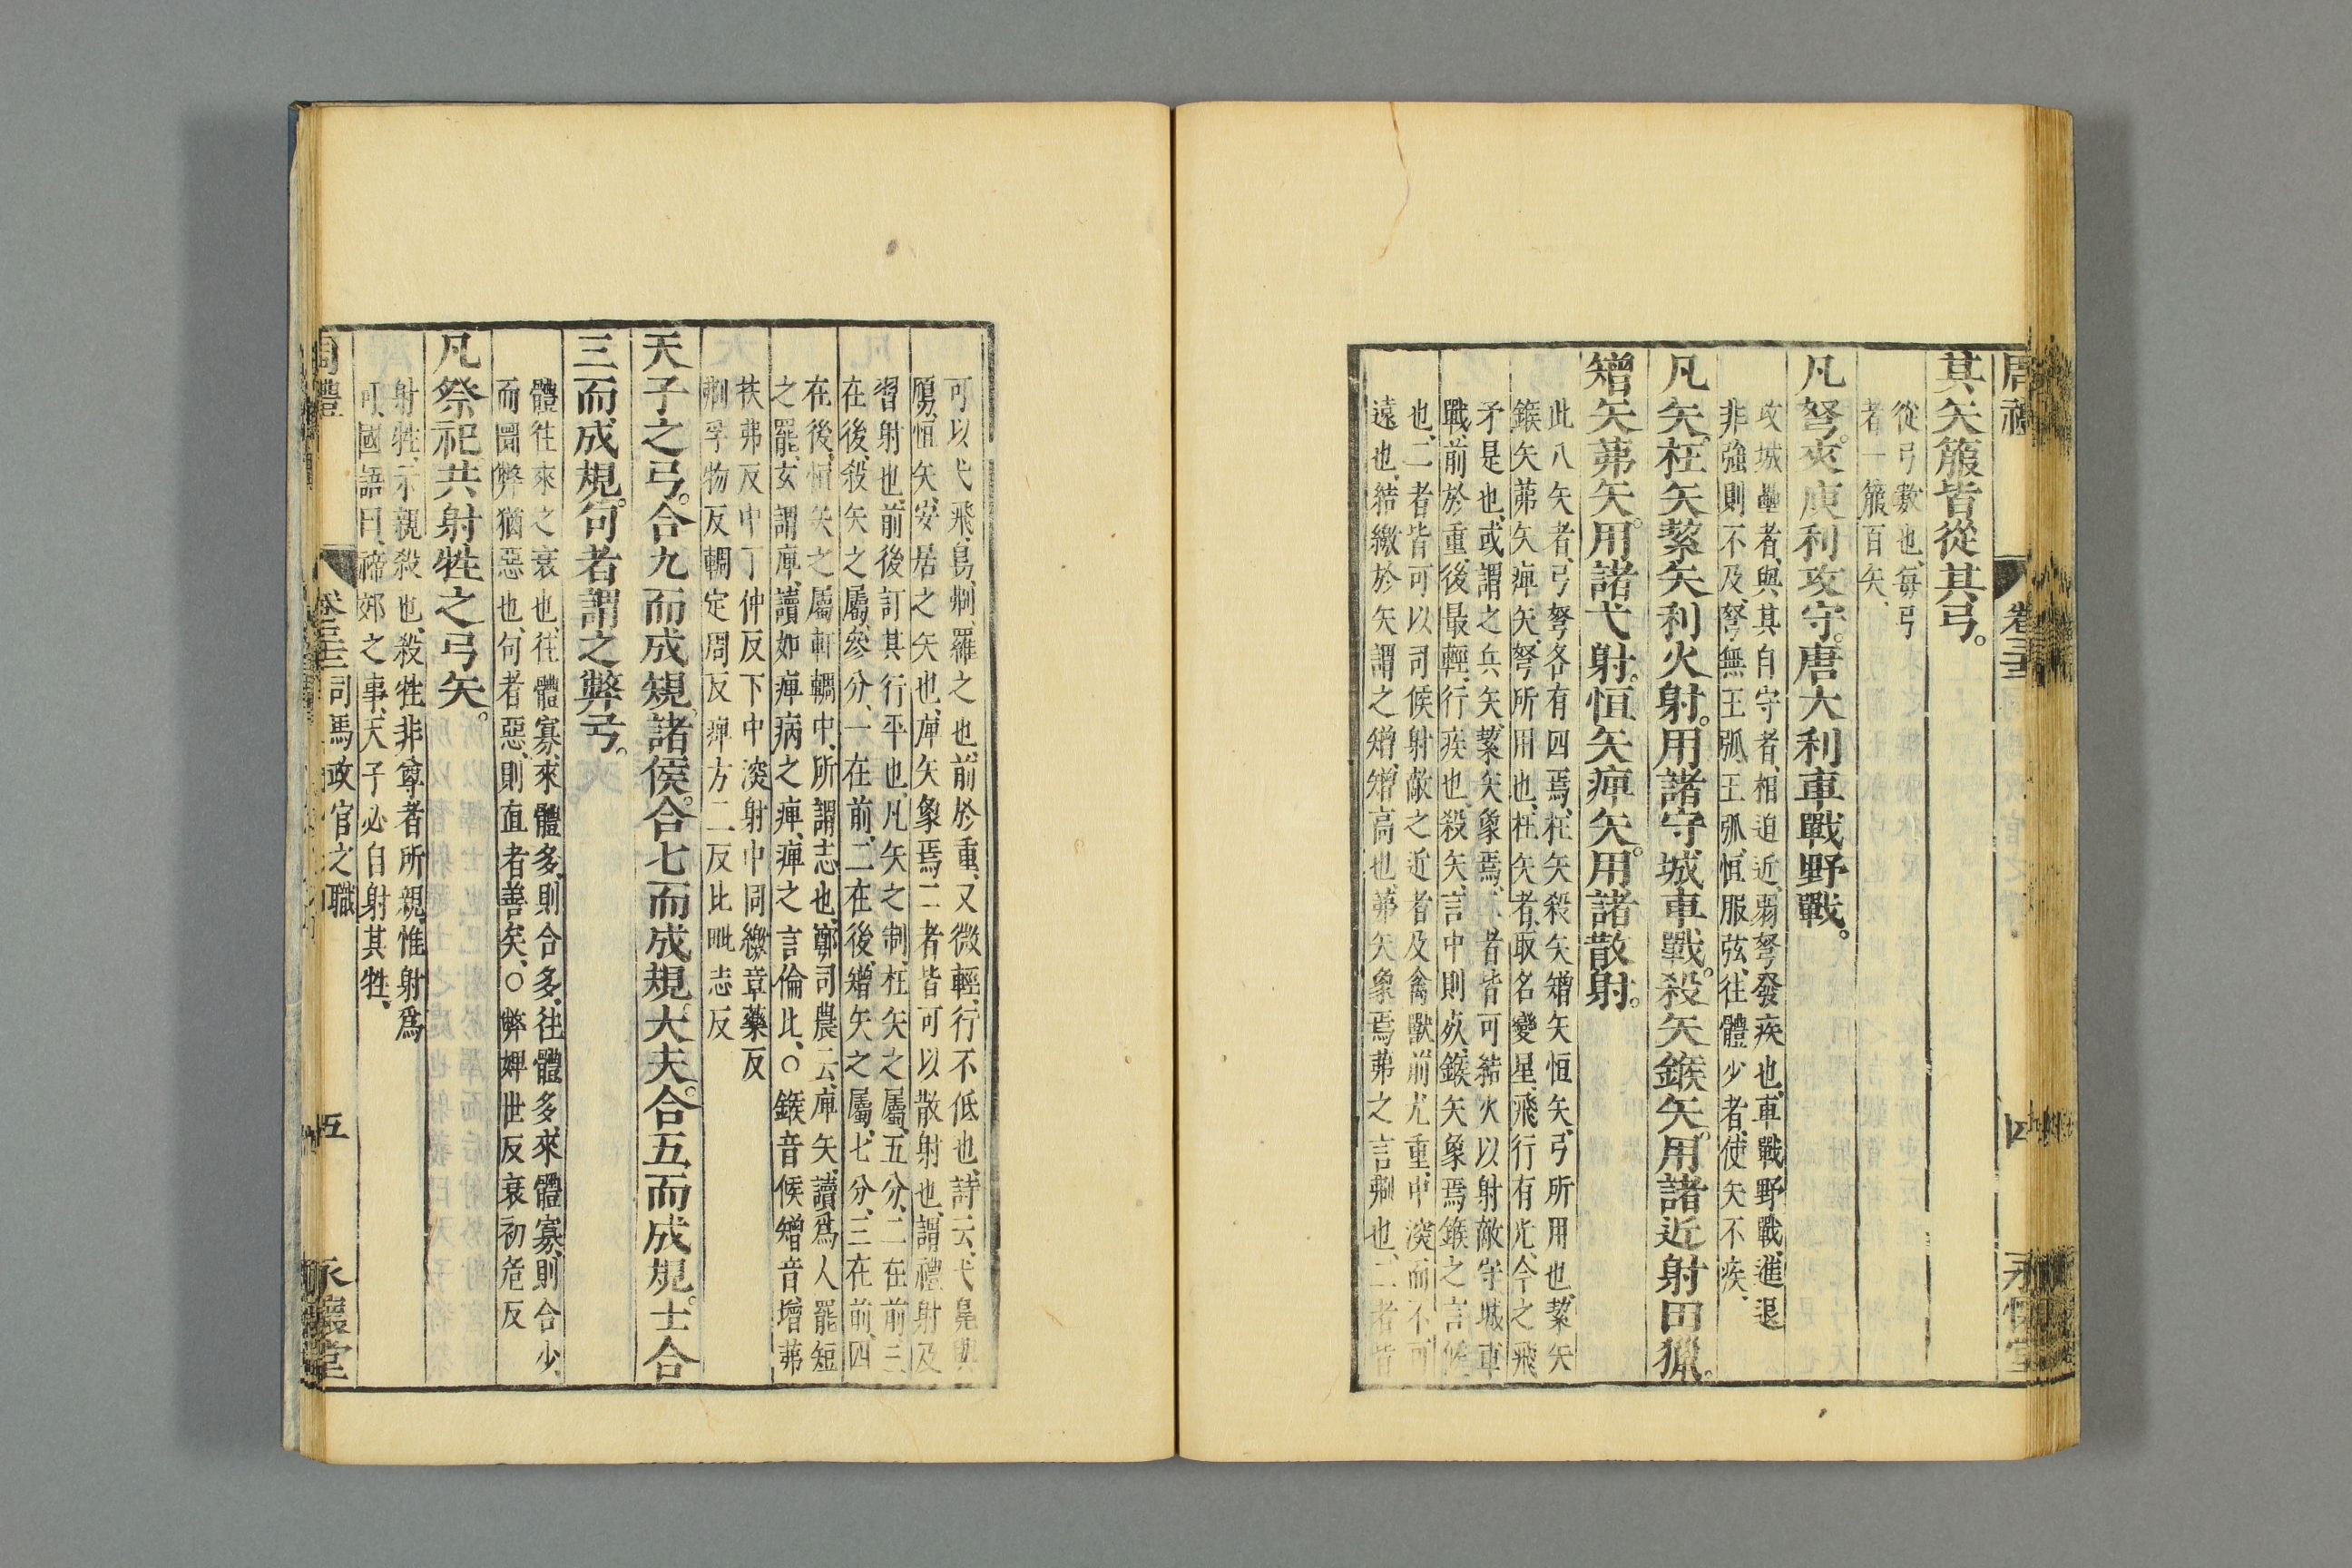 周禮 卷三十二 四 永懷堂
其矢箙皆從其弓。
從弓數也、每弓
者一箙百矢、
凡弩。夾庾利攻守。唐大利車戰野戰。
攻城壘者、與其自守者、相迫近、弱弩發疾也、車戰野戰、進退
非強則不及、弩無王弧、王弧、恒服弦、往體少者、使矢不疾、
凡矢。枉矢絜矢利火射。用諸守城車戰。殺矢鍭矢。用諸近射田獵。
矰矢茀矢。用諸弋射。恒矢痺矢。用諸散射。
此八矢者、弓弩各有四焉、枉矢殺矢矰矢恒矢、弓所用也、絜矢
鍭矢茀矢痺矢、弩所用也、枉矢者、取名變星、飛行有光、今之飛
矛是也、或謂之兵矢、絜矢象焉、二者皆可結火以射敵守城車
戰、前於重、後最輕、行疾也、殺矢、言中則死、鍭矢象焉、鍭之言候
也、二者皆可以司候射敵之近者及禽獸、前尤重、中深、而不可
遠也、結繳於矢謂之矰、矰高也、茀矢象焉、茀之言刜也、二者皆
可以弋飛鳥、刜羅之也、前於重、又微輕、行不低也、詩云、弋鳧與
鴈、恒矢、安居之矢也、庳矢象焉、二者皆可以散射也、謂禮射及
習射也、前後訂其行平也、凡矢之制、枉矢之屬、五分、二在前、三
在後、殺矢之屬、參分、一在前、二在後、矰矢之屬、七分、三在前、四
在後、恒矢之屬、軒輖中、所謂志也、鄭司農云、庳矢、讀爲人罷短
之罷、玄謂庳、讀如痺病之痺、痺之言倫比、○鍭音候矰音增茀
扶弗反中丁仲反下中深射中同繳章藥反
刜孚物反輖定周反痺方二反比毗志反
天子之弓。合九而成規。諸侯。合七而成規。大夫。合五而成規。士合
三而成規。句者謂之弊弓。
體往來之衰也、往體寡、來體多、則合多、往體多、來體寡、則合少
而圜弊猶惡也、句者惡、則直者善矣、○弊婢世反衰初危反
凡祭祀。共射牲之弓矢。
射牲、示親殺也、殺牲非尊者所親、惟射爲
可、國語曰、禘郊之事、天子必自射其牲、
周禮 卷三十二司馬政官之職 五 永懷堂